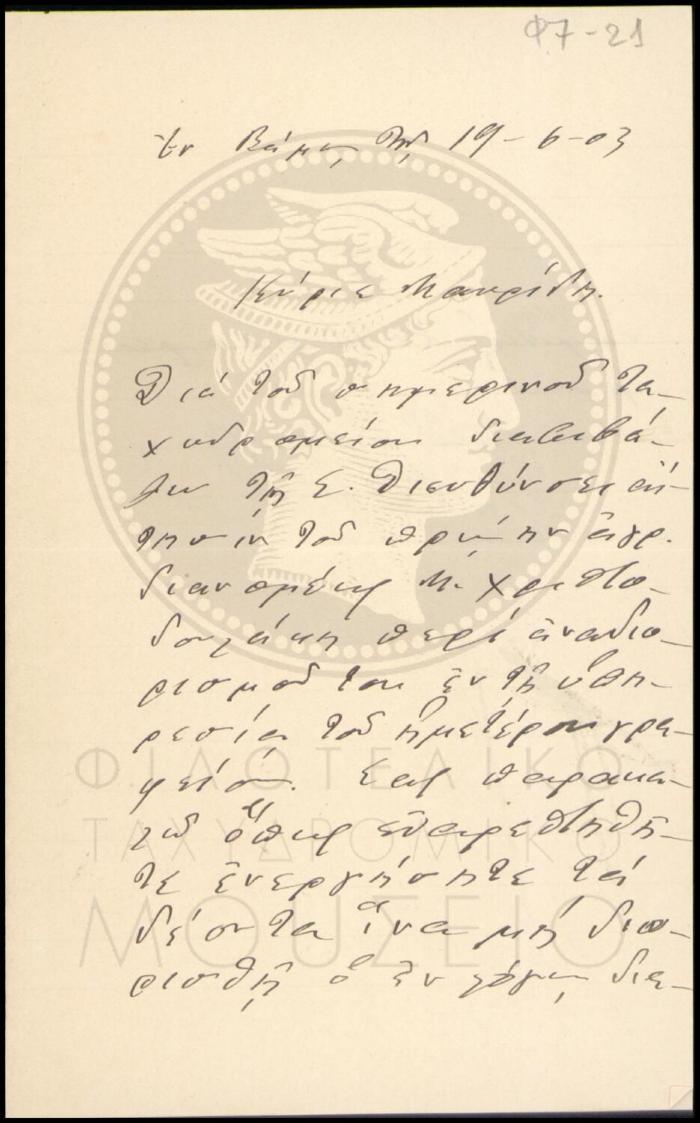 Φ7-21
Ἐν Βάμῳ τῇ 19-6-03
Κύριε Μαυρίδη.
Διά τοῦ σημερινοῦ τα-
χυδρομείου διαβιβά-
ζω τῇ Σ. Διευθύνσει αἴ-
τησιν τοῦ πρώην ἀγρ.
διανομέως Μ. Χριστο-
δουλάκη περί ἀναδιο-
ρισμοῦ του ἐν τῇ ὑπη-
ρεσίᾳ τοῦ ἡμετέρου γρα-
φείου. Σας παρακα-
λῶ ὅπως εὐαρεστηθῆ-
τε ἐνεργήσητε τά
δέοντα ἵνα μή διο-
ρισθῇ ὁ ἐν λόγῳ δια-
ΦΙΛΟΤΕΛΙΚΟ
ΤΑΧΥΔΡΟΜΙΚΟ
ΜΟΥΣΕΙΟ